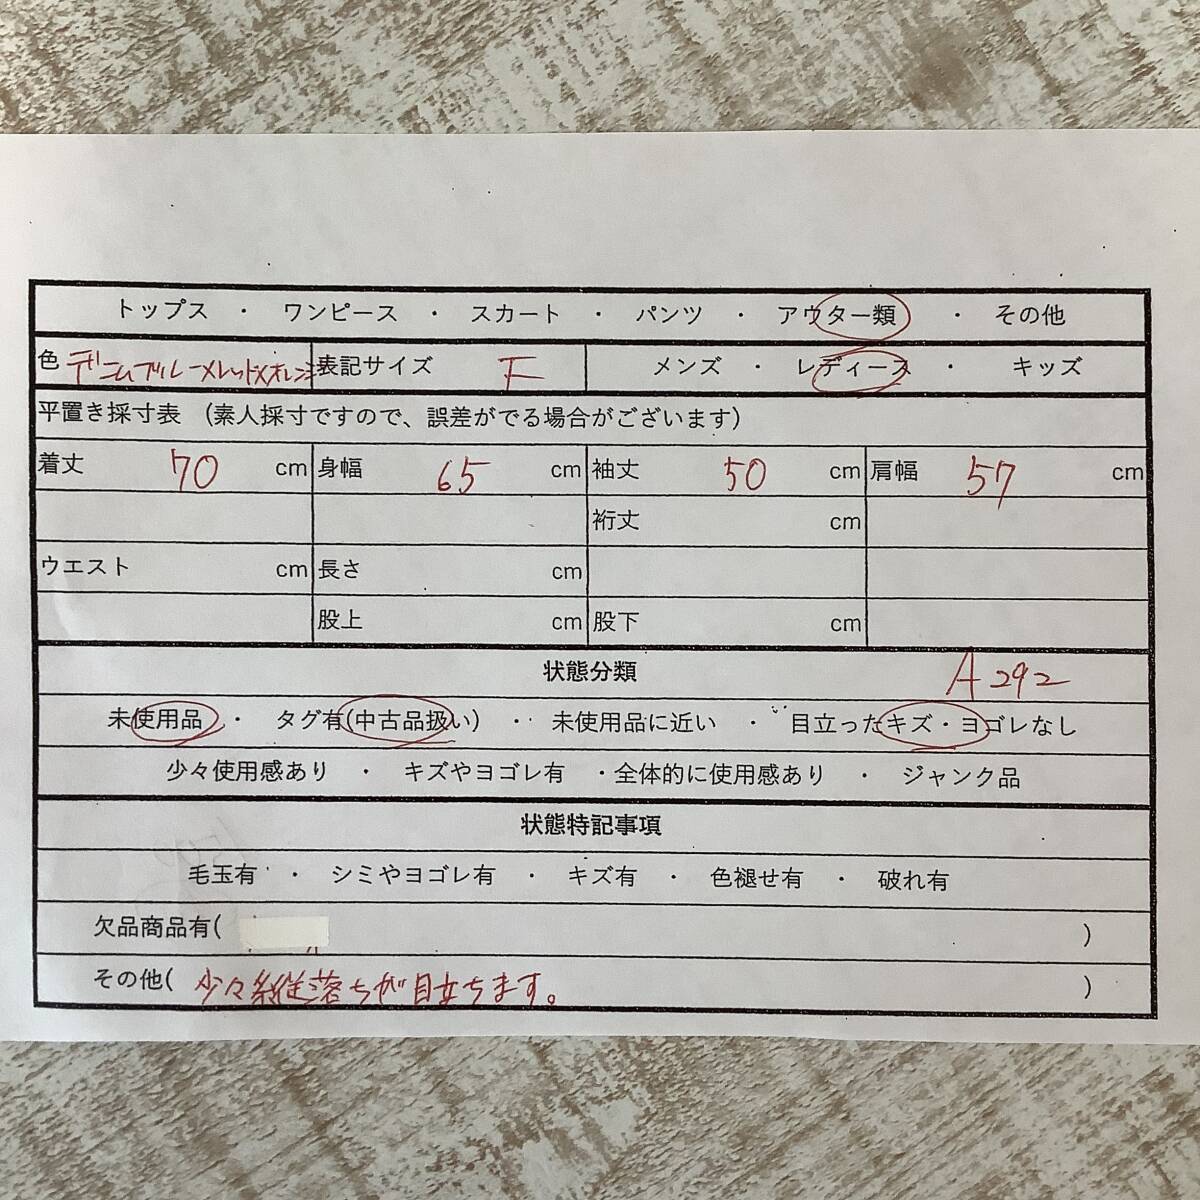 トップス ・ ワンピース ・ スカート ・ パンツ ・ アウター類 ・ その他
色 デニムブルー×レッド×オレンジ 表記サイズ F メンズ ・ レディース ・ キッズ
平置き採寸表 （素人採寸ですので、誤差がでる場合がございます）
着丈 70 cm 身幅 65 cm 袖丈 50 cm 肩幅 57 cm
裄丈 cm
ウエスト cm 長さ cm
股上 cm 股下 cm
状態分類 A292
未使用品 ・ タグ有(中古品扱い) ・ 未使用品に近い ・ 目立ったキズ・ヨゴレなし
少々使用感あり ・ キズやヨゴレ有 ・全体的に使用感あり ・ ジャンク品
状態特記事項
毛玉有 ・ シミやヨゴレ有 ・ キズ有 ・ 色褪せ有 ・ 破れ有
欠品商品有( )
その他( 少々縦落ちが目立ちます。 )